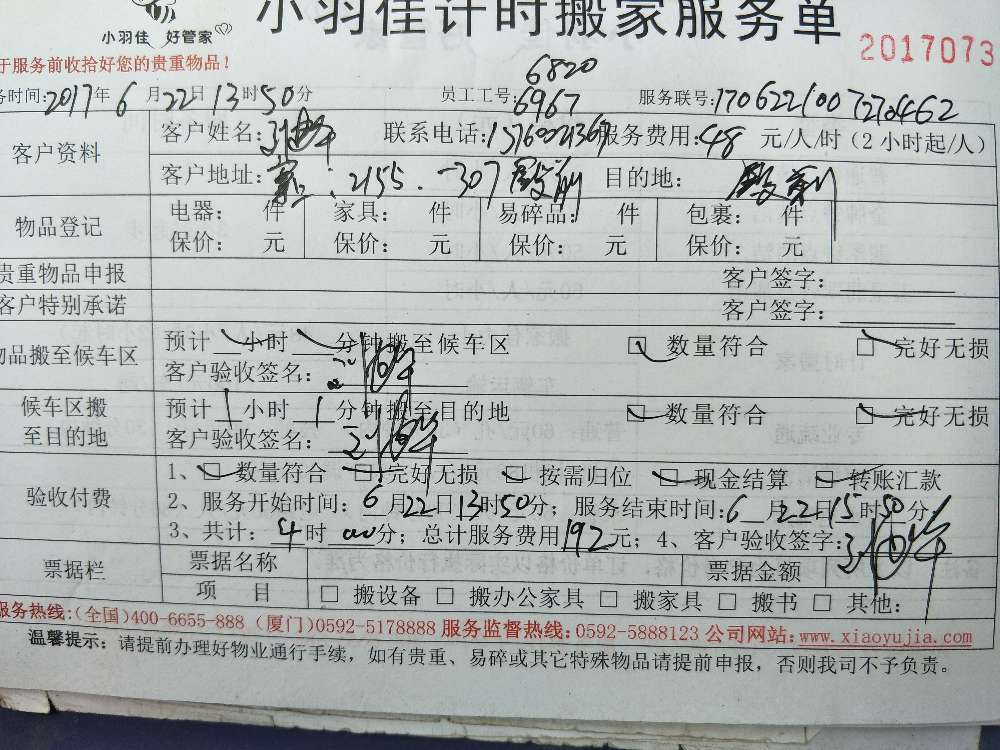 小羽佳计时搬家服务单
小羽佳 好管家
2017073
于服务前收拾好您的贵重物品！
6820
务时间：2017年6月22日13时50分 员工工号：6967 服务联号：
客户资料 客户姓名： 联系电话： 服务费用：48 元/人/时（2小时起/人）
客户地址： 2155 307 目的地：
物品登记 电器： 件 家具： 件 易碎品： 件 包裹： 件
保价： 元 保价： 元 保价： 元 保价： 元
贵重物品申报 客户签字：
客户特别承诺 客户签字：
物品搬至候车区 预计 小时 分钟搬至候车区 □ 数量符合 □ 完好无损
客户验收签名：
候车区搬至目的地 预计 小时 分钟搬至目的地 □ 数量符合 □ 完好无损
客户验收签名：
验收付费 1、□ 数量符合 □ 完好无损 □ 按需归位 □ 现金结算 □ 转账汇款
2、服务开始时间：6月22日13时50分；服务结束时间：6月22日15时50分；
3、共计：4时00分；总计服务费用192元；4、客户验收签字：
票据栏 票据名称 票据金额
项 目 □ 搬设备 □ 搬办公家具 □ 搬家具 □ 搬书 □ 其他：
服务热线：(全国)400-6655-888 (厦门)0592-5178888 服务监督热线：0592-5888123 公司网站：www.xiaoyujia.com
温馨提示：请提前办理好物业通行手续，如有贵重、易碎或其它特殊物品请提前申报，否则我司不予负责。